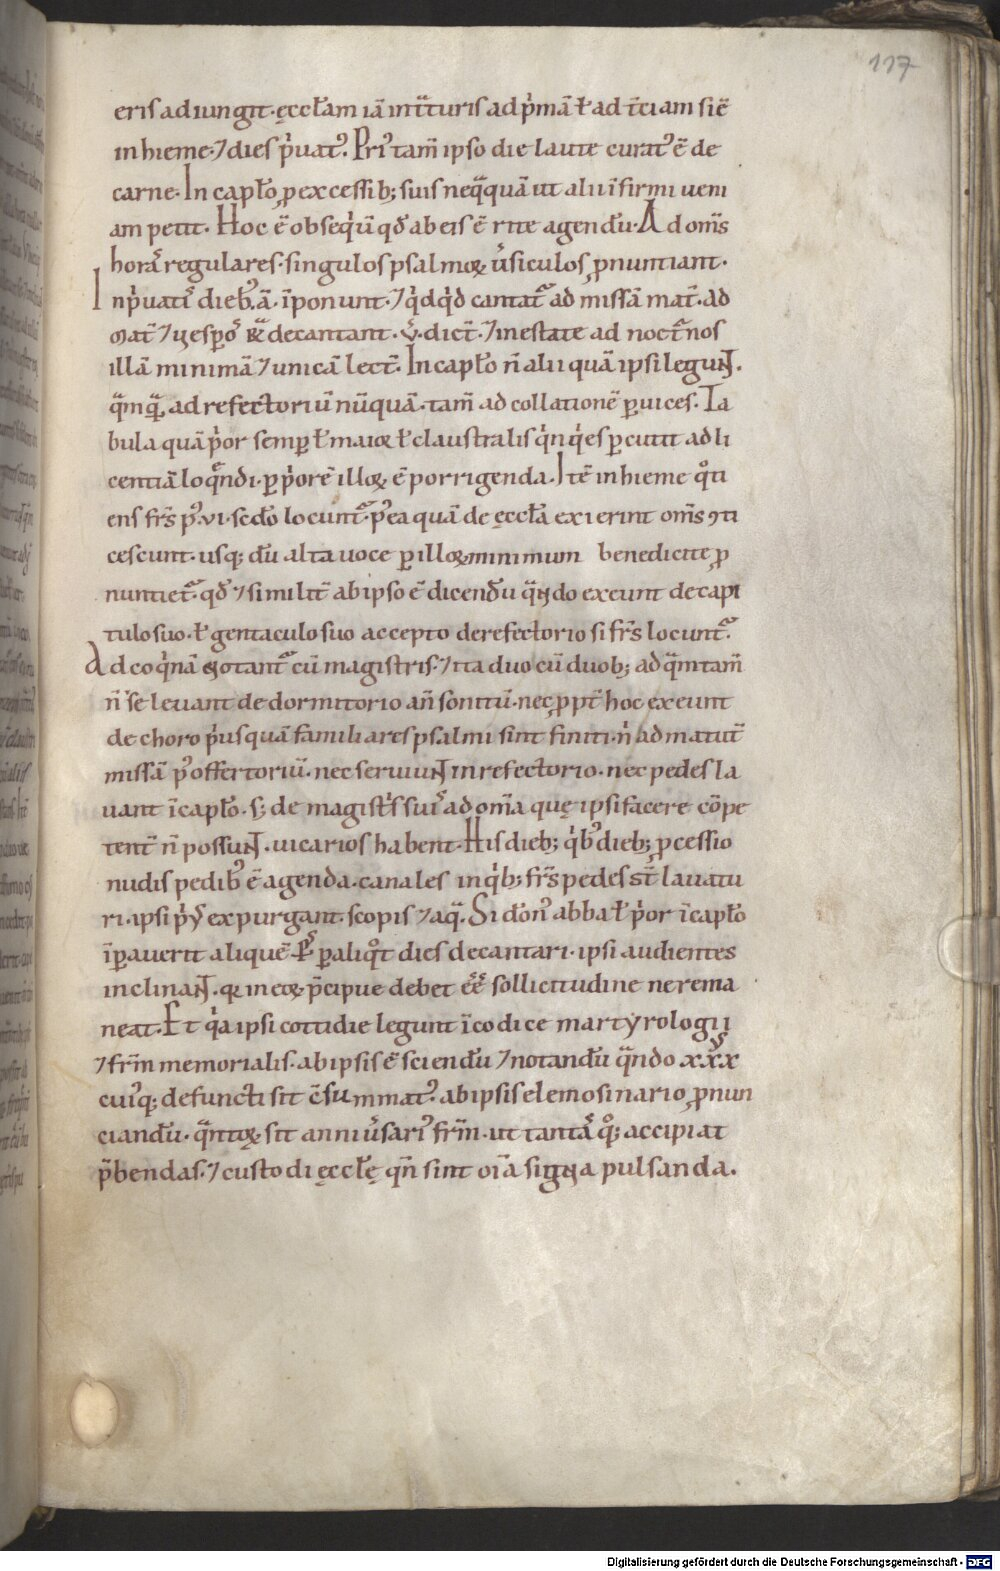 117
eris ad iungit. ęccłam iā int̄turis ad p̍mā ł ad t̄ciam si ē
in hieme. ⁊ dies p̍uat᾽. Pri᾽ tam̄ ipso die laute curat᾽ ē de
carne. In capłо ꝓ excessib; suis neq̄quā ut alii īfirmi ueni
am petit. Hoc ē obseq̍ū qđ ab eis ē rite agendū. Ad om̄s
horas regulares. singulos psalmoꝝ ūsiculos ꝓnuntiant.
In p̍uatis dieb᾽. ā. īponunt. ⁊ q̍dq̍d cantat᾽ ad missā mat̄. ad
mat̄ ⁊ uesꝑos & decantant. V. dict̄. ⁊ in estate ad noct̄nos
illā minimā ⁊ unicā lect̄. In capłо n̄ alii quā ipsi legunt.
q̄mq̄ ad refectoriū nūquā. tam̄ ad collationē ꝑ uices. Ta
bula quā p̍or semꝑ ł maioꝝ ł claustralis q̍n q̍es ꝑcutit ad li
centiā loq̄ndi. ꝑ p̍orē illoꝝ ē porrigenda. Itē in hieme q̊ti
ens fr̄s p᾽. vi. sedo locunt᾽. p᾽ea quā de ęccła exierint om̄s ꝯti
cescunt. usq; dū alta uoce ꝑ illoꝝ minimum benedicite ꝓ
nuntiet᾽. qđ ⁊ similit̄ ab ipso ē dicendū q̄ndo exeunt de capi
tulo suo. ł gentaculo suo accepto de refectorio si fr̄s locunt᾽.
Ad coq̍nā notant᾽ cū magistris. ⁊ ita duo cū duob; ad q̄m tam̄
n̄ se leuant de dormitorio an̄ sonitū. nec ꝓpt̄ hoc exeunt
de choro p̍us quā familiares psalmi sint finiti. n̍ ad matut̄
missā p᾽ offertoriū. nec seruiunt in refectorio. nec pedes la
uant ī capłо. s; de magistris suis ad om̄a quę ipsi facere cōpe
tent̄ n̄ possunt. uicarios habent. His dieb; q̍b᾽ dieb; ꝓcessio
nudis pedib᾽ ē agenda. canales in q̍b; fr̄s pedes st̄ lauatu
ri. ipsi p̍us expurgant. scopis ⁊ aq̄. Si don᾽ abba ł p̍or ī capłо
īꝑauerit aliquē ꝑs ꝑ aliq̊t dies decantari. ipsi audientes
inclinant. qꝛ in eoꝝ p̄cipue debet ēē sollicitudine ne rema
neat. Et q̍a ipsi cottidie legunt ī codice martyrologii
⁊ fr̄m memorialis. ab ipsis ē sciendū ⁊ notandū q̄ndo xxx᾽
cui᾽q; defuncti sit c̄summat᾽. ab ipsis elemosinario ꝓnun
ciandū. q̄ntoꝝ sit anniūsari᾽ fr̄m. ut tantas q̊q; accipiat
p̄bendas. ⁊ custodi ęccłę qn̄ sint oīa signa pulsanda.
Digitalisierung gefördert durch die Deutsche Forschungsgemeinschaft - DFG